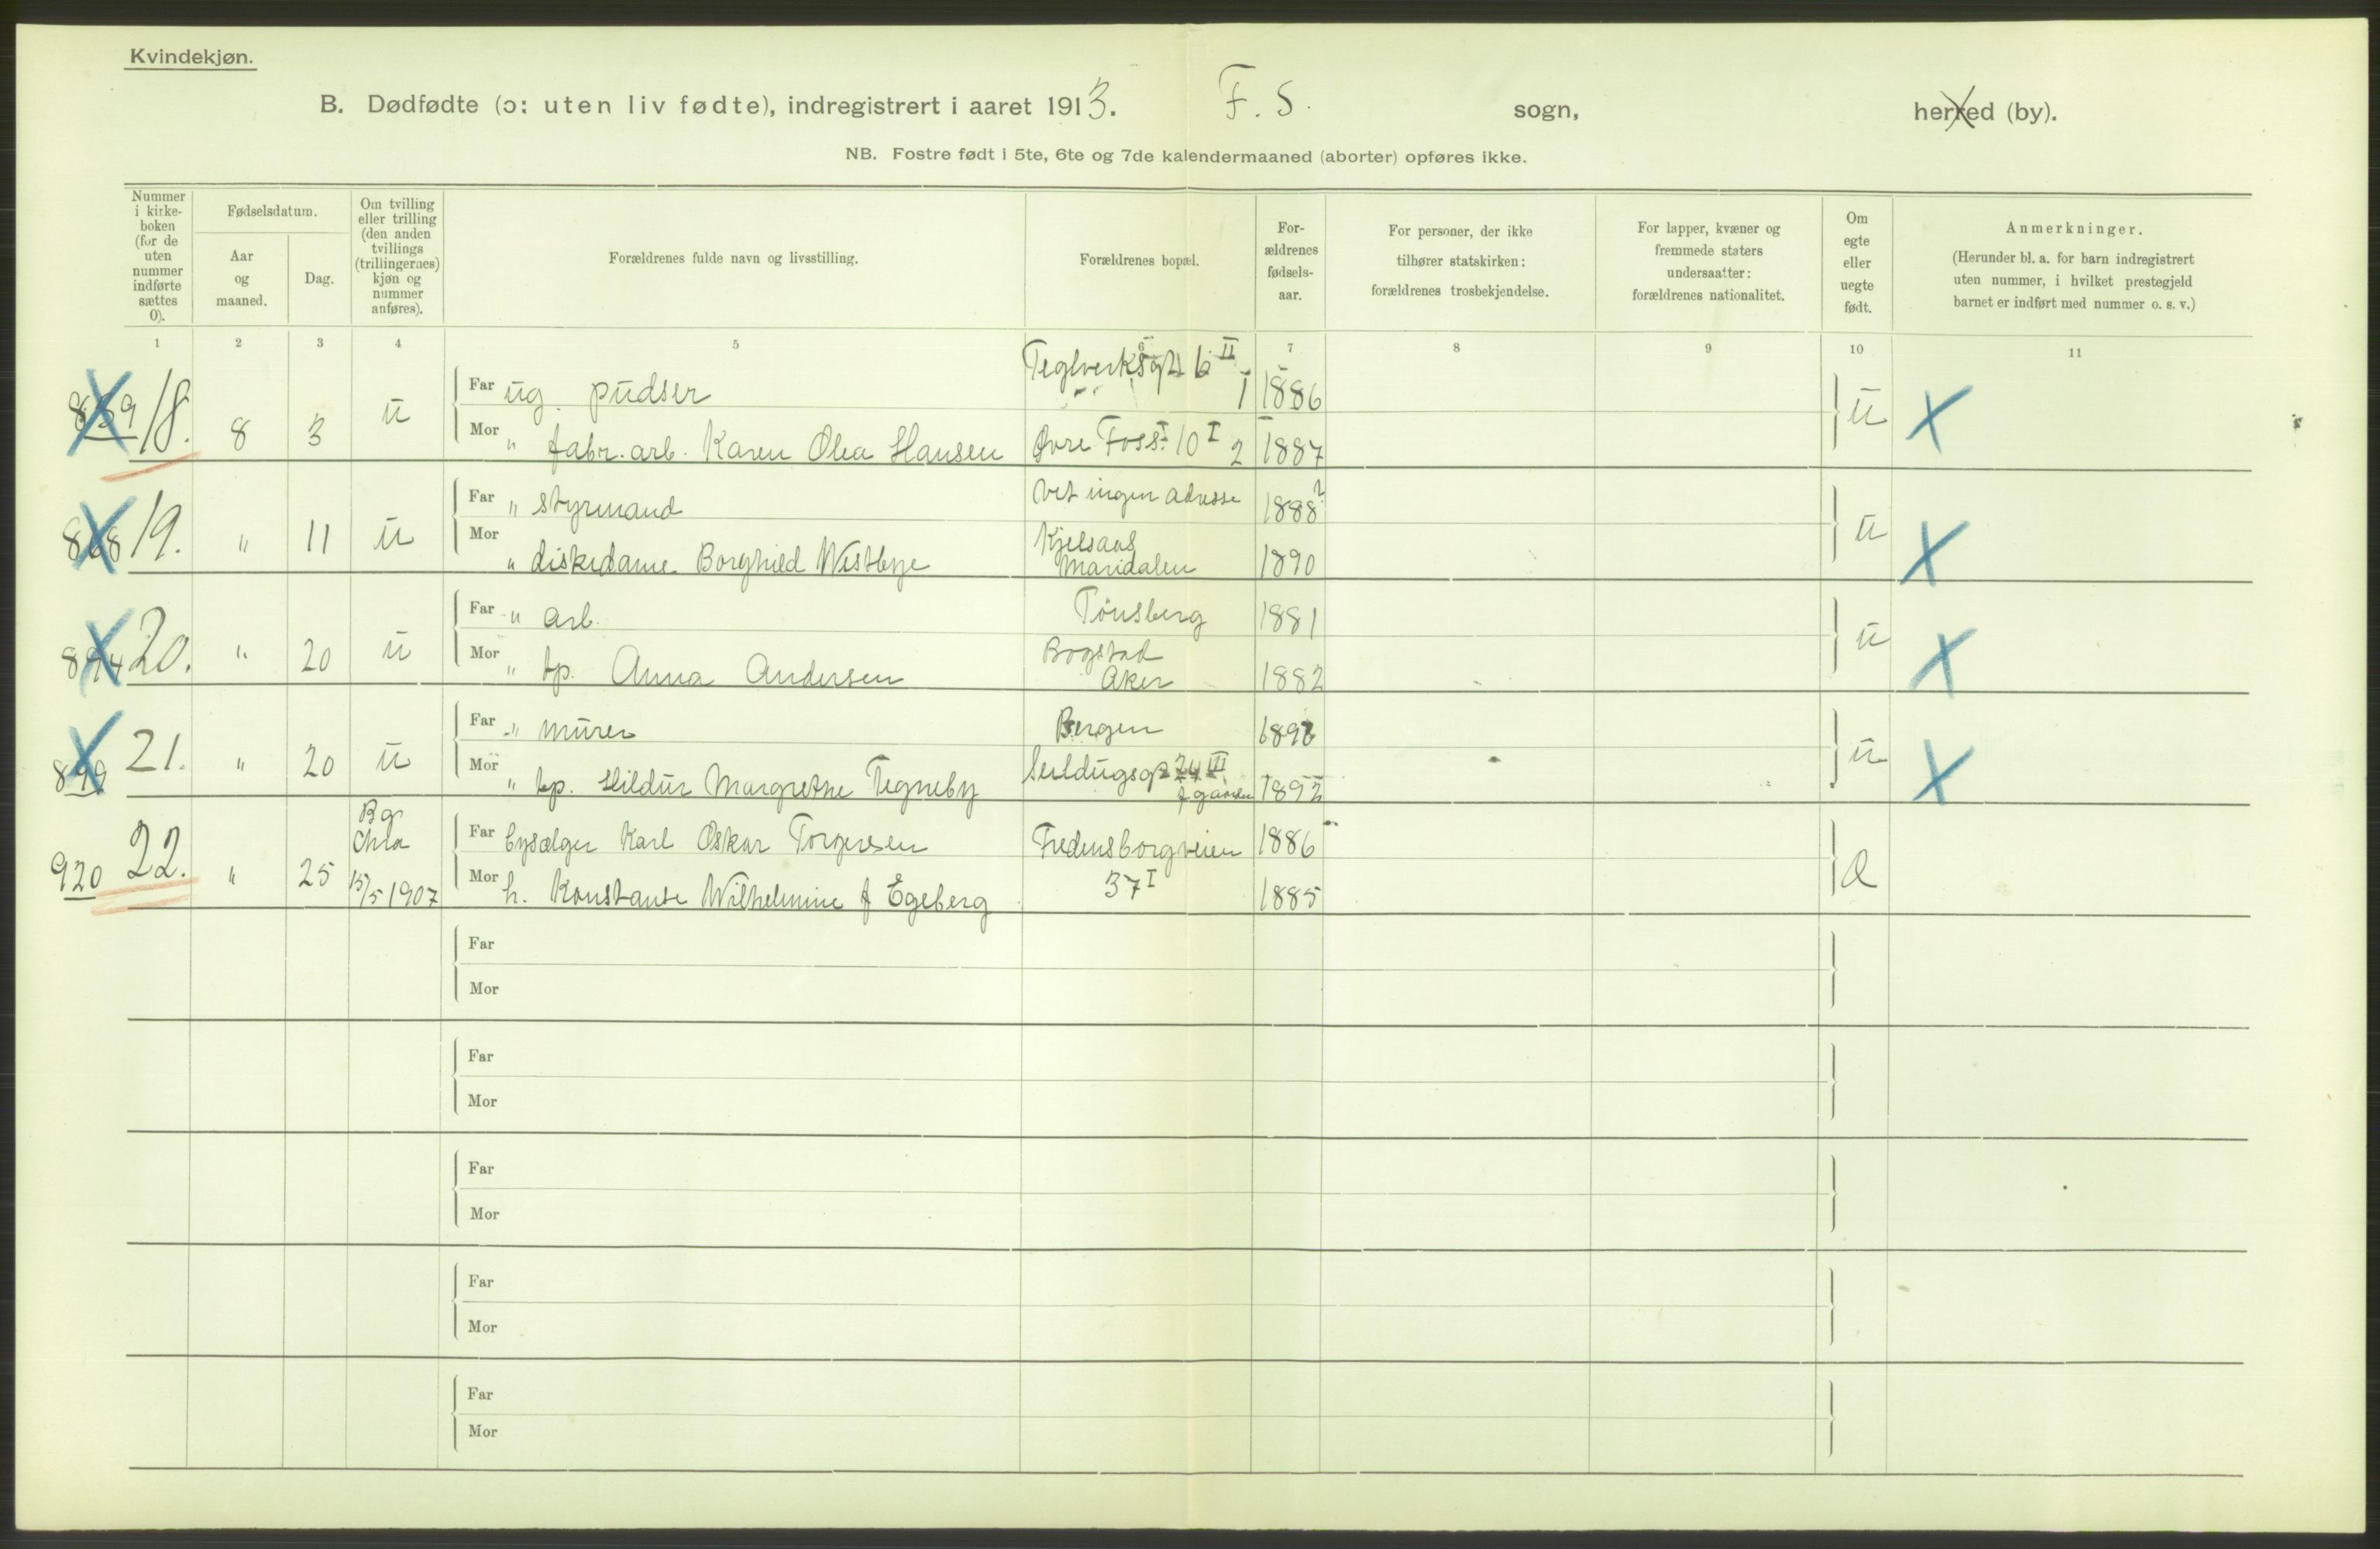 Kvindekjøn.
B. Dødfødte (ɔ: uten liv fødte), indregistrert i aaret 1913. F. S. sogn, herred (by).
NB. Fostre født i 5te, 6te og 7de kalendermaaned (aborter) opføres ikke.
Nummer i kirke-boken (for de uten nummer indførte sættes 0).
Fødselsdatum.
Aar og maaned.
Dag.
Om tvilling eller trilling (den anden tvillings (trillingernes) kjøn og nummer anføres).
Forældrenes fulde navn og livsstilling.
Forældrenes bopæl.
For-ældrenes fødsels-aar.
For personer, der ikke tilhører statskirken: forældrenes trosbekjendelse.
For lapper, kvæner og fremmede staters undersaatter: forældrenes nationalitet.
Om egte eller uegte født.
Anmerkninger.
(Herunder bl. a. for barn indregistrert uten nummer, i hvilket prestegjeld barnet er indført med nummer o. s. v.)
1 2 3 4 5 6 7 8 9 10 11
Far ug. pudser Teglverksgt 6 II 1 1886
859 18. 8 3 u u
Mor " fabr. arb. Karen Olea Hansen Øvre Foss. 10 I 2 1887
Far " styrmand Vet ingen adresse 1888?
868 19. " 11 u u
Mor " diskedame Borghild Westbye Kjelsaas Maridalen 1890
Far " arb. Tønsberg 1881
894 20. " 20 u u
Mor " tp. Anna Andersen Bogstad Aker 1882
Far " murer Bergen
899 21. " 20 u u
Mor " tp. Hildur Margrethe Tegneby Seildugsg 24 III 1892
Bg. Chra 15/5 1907
Far bysælger Karl Oskar Torgersen Fredensborgveien 1886
920 22. " 25
Mor h. Konstanse Wilhelmine f Egeberg 37 I 1885
Far
Mor
Far
Mor
Far
Mor
Far
Mor
Far
Mor